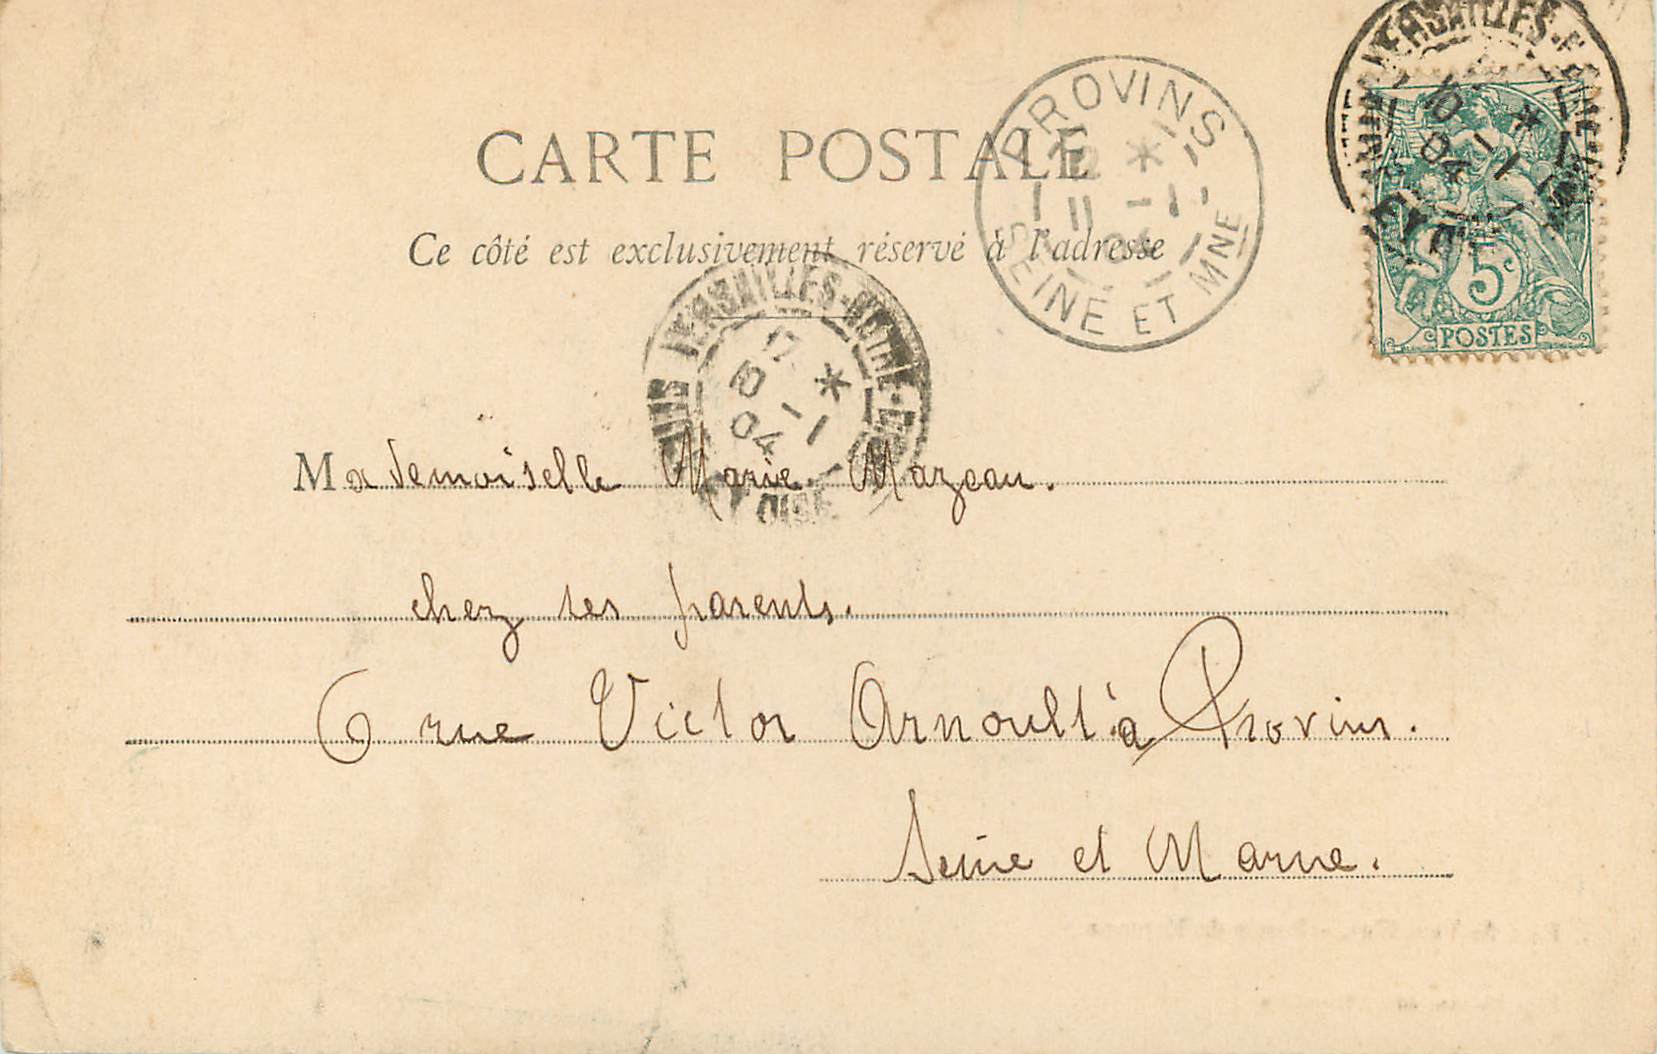 CARTE POSTALE
Ce côté est exclusivement réservé à l'adresse
PROVINS
12 *
11 -1
04
SEINE ET MNE
VERSAILLES
10 * -1
04
5c
POSTES
VERSAILLES-NOTRE-D
17 *
10 -1
04
OISE
Mademoiselle Marie Mazeau.
chez ses parents.
6 rue Victor Arnoult à Provins.
Seine et Marne.